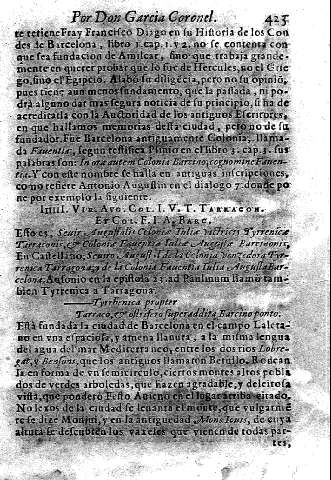 Por Don Garcia Coronel. 423
te refiene Fray Francisco Diago en su Historia de los Con
des de Barcelona, libro 1. cap. 1. y 2. no se contenta con
que sea fundacion de Amilcar, sino que trabaja grande-
mente en querer probar que lo fue de Hercules, no el Grie
go, sino el Egipcio. Alabo su diligēcia, pero no su opinió,
pues tiene aun menos fundamento, que la passada, ni po
drà alguno dar mas segura noticia de su principio, si ha de
acreditalla con la Auctoridad de los antiguos Escritores,
en que hallamos memorias desta ciudad, pero no de su
fundador. Fue Barcelona antiguamente Colonia, llama
da Fauentia, segun testifica Plinio en el libro 3. cap. 3. sus
palabras son: In ora autem Colonia Barcino, cognomine Fauen-
tia. Y con este nombre se halla en antiguas inscripciones,
como refiere Antonio Augustin en el dialogo 7. donde po
ne por exemplo la siguiente.
IIIIII. VIR. AVG. COL. I. V. T. TARRACON.
ET COL. F. I. A. BARC.
Esto es, Seuir Augustalis Coloniæ Iuliæ victricis Tyrrenicæ
Tarraconis, & Coloniæ Fauentiæ Iuliæ Augustæ Barcinonis,
En Castellano, Seuiro Augustal de la Colonia vencedora Tyr-
renica Tarragona, y de la Colonia Fauentia Iulia Augusta Bar-
celona. Ausonio en la epistola 23. ad Paulinum llamó tam-
bien Tyrrenica a Tarragona.
Tyrrhenica propter
Tarraco, & ostrifero superaddita Barcino ponto.
Està fundada la ciudad de Barcelona en el campo Laleta-
no en vna espaciosa, y amena llanura, a la misma lengua
del agua del mar Mediterraneo, entre los dos rios Lobre-
gat, y Besons, que los antiguos llamaron Betulo. Rodean
la en forma de vn semicirculo, ciertos montes altos pobla
dos de verdes arboledas, que hazen agradable, y deleitosa
vista, que ponderó Festo Auieno en el lugar arriba citado.
No lexos de la ciudad se leuanta el monte, que vulgarmē
te se dize Monjui, y en la antiguedad, Mons Iouis, de cuya
altura se descubren los vaxeles que vienen de todas par-
tes,